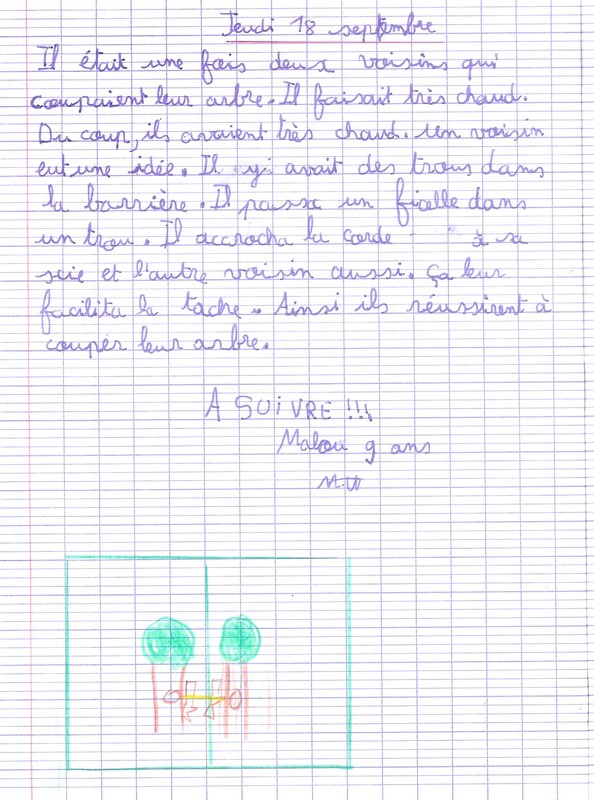 Jeudi 18 septembre
Il était une fois deux voisins qui
coupaient leur arbre. Il faisait très chaud.
Du coup, ils avaient très chaud. Un voisin
eut une idée. Il y avait des trous dans
la barrière. Il passa un ficelle dans
un trou. Il accrocha la corde à sa
scie et l'autre voisin aussi. Ça leur
facilita la tache. Ainsi ils réussirent à
couper leur arbre.
A SUIVRE !!!
Malou 9 ans